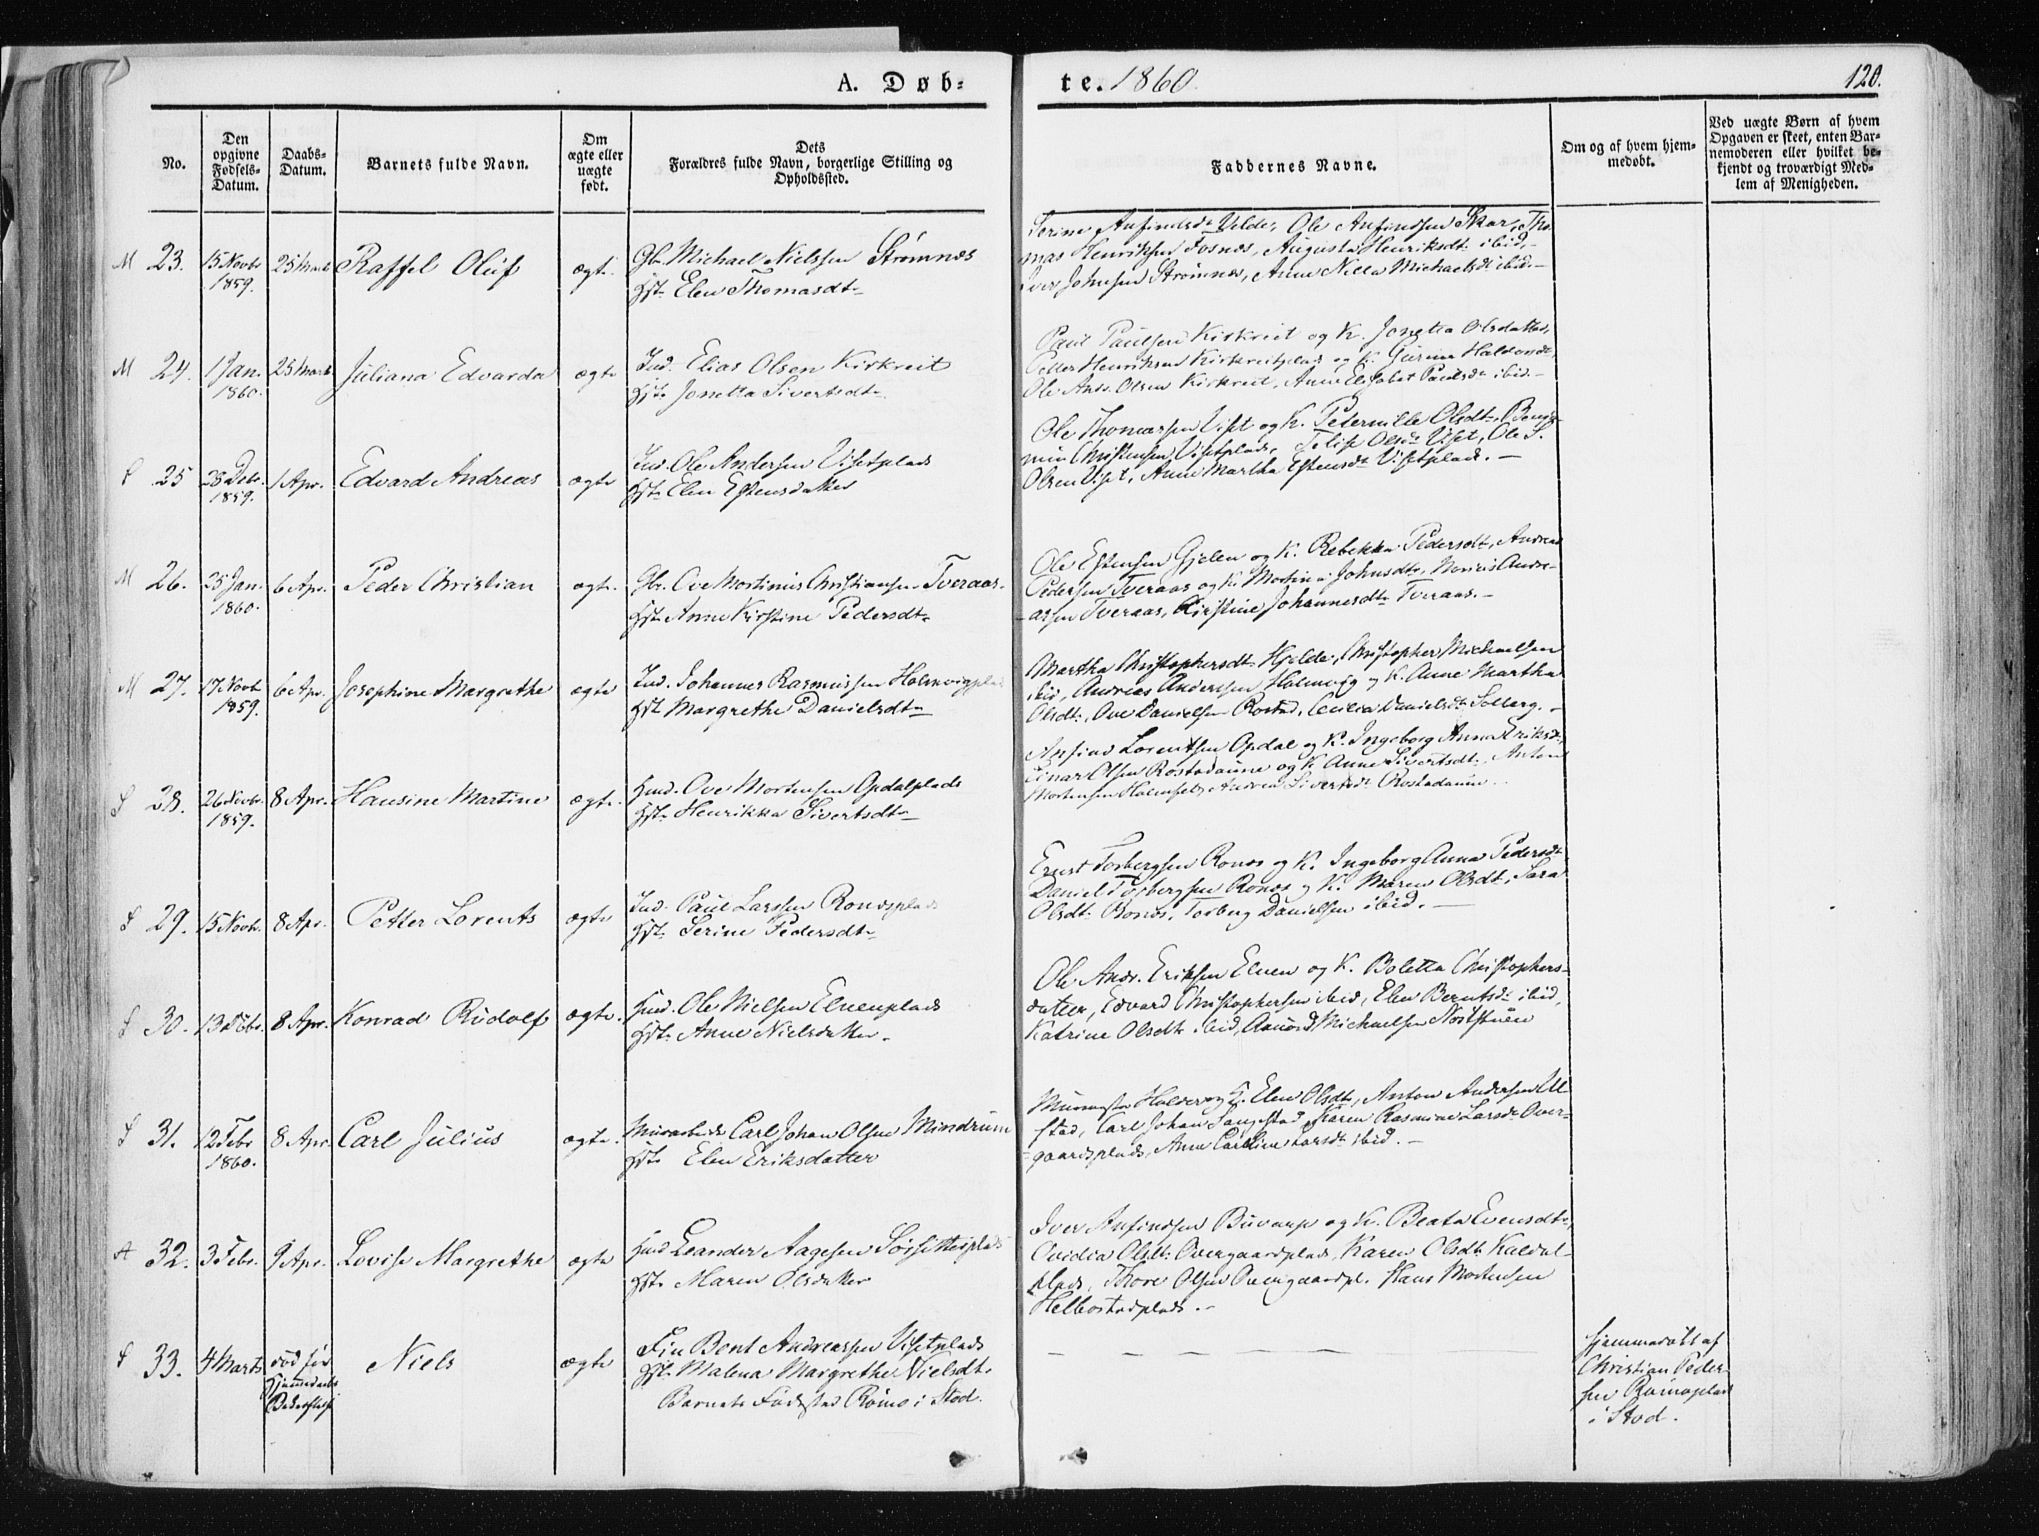 A. Døb=
te. 1860.
120.
No.
Den opgivne Fødsels-Datum.
Daabs-Datum.
Barnets fulde Navn.
Om ægte eller uægte født.
Dets Forældres fulde Navn, borgerlige Stilling og Opholdssted.
Faddernes Navne.
Om og af hvem hjem-medøbt.
Ved uægte Børn af hvem Opgaven er skeet, enten Bar-nemoderen eller hvilket be-kjendt og troværdigt Med-lem af Menigheden.
M 23. 15 Novbr 1859. 25 Marts Raffel Oluf ægte
Gbr. Michael Nielssen Strømnes
Hst. Elen Thomasdt.
Serine Anfindsdt Velde, Ole Anfindsen Skar, Tho
mas Henriksen Fosnes, Augusta Henriksdt. ibid,
Iver Johnsen Strømnes, Anne Nilla Michaelsdt ibid.
M 24. 1 Jan. 1860. 25 Marts Juliana Edvarda ægte
Ind. Elias Olsen Kirkreit
Hst. Jonetta Sivertsdt.
Paul Paulsen Kirkreit og K. Jonetta Olsdatter,
Petter Henriksen Kirkreitplads og K. Gurine Haldorsdt,
Ole Andr. Olsen Kirkreit, Anne Elisabet Paulsdt ibid.
S 25 28 Debr. 1859. 1 Apr. Edvard Andreas ægte
Ind. Ole Andersen Visetplads
Hst. Elen Estensdatter
Ole Thomassen Viset og K. Peternille Olsdt, Benja
min Christensen Visetplads, Olsdt Viset, Ole S.
Olsen Viset, Anne Martha Estensdt Visetplads.
M 26. 25 Jan. 1860. 6 Apr. Peder Christian ægte.
Gbr. Ove Mortinus Christiansen Tveraas.
Hst. Anne Kirstine Pedersdt.
Ole Estensen Gjelen og K. Rebekka Pedersdt., Andreas
Pedersen Tveraas og K. Martina Johnsdt., Andre-
asen Tveraas, Kirstine Johannesdt. Tveraas.
M 27. 17 Novbr 1859. 6 Apr. Josephine Margrethe ægte
Ind. Johannes Rasmussen Holmvigplads
Hst. Margrethe Danielsdt.
Martha Christophersdt. Hjelde, Christopher Michaelsen
ibid, Andreas Anderssen Holmvig og K. Anne Martha
Olsdt., Ove Danielsen Rostad, Cecilia Danielsdt. Solberg.
S 28. 26 Novbr. 1859. 8 Apr. Hansine Martine ægte.
Huusmd. Ove Mortensen Opdalplads
Hst. Henrikka Sivertsdt.
Anfind Lorentsen Opdal og K. Ingeborg Anna Eriksdt,
Einar Olsen Rostadaune og K. Anne Sivertsdt., Anton
Mortensen Andrea Sivertsdt. Rostadaune.
S 29. 15 Novbr. 8 Apr. Petter Lorents ægte
Ind. Paul Larssen Ronesplads
Hst. Serine Pedersdt.
Ernst Torbergsen Rones og K. Ingeborg Anna Pedersdt.
Daniel Torbergsen Rones og K. Maren Olsdt, Sara
Olsdt. Rones, Torberg Danielsen ibid.
S 30. 13 Debr. 8 Apr. Konrad Rudolf ægte.
Huusmd. Ole Nielsen Elvenplads
Hst. Anne Nielsdatter.
Ole Andr. Eriksen Elven og K. Boletta Christophers-
datter, Edvard Christophersen ibid, Elen Berntsdt ibid,
Katrine Olsdt ibid, Amund Michaelsen
S 31. 12 Febr 1860. 8 Apr. Carl Julius ægte.
Murarbeider Carl Johan Olsen Mindrum
Hst. Elen Eriksdatter
Murmester Halder og K. Elen Olsdt., Anton Andersen Ul
stad, Carl Johan Langestad, Karen Rasmine Larsdt Over-
gaardsplads, Anne Caroline Larsdt ibid.
A 32. 3 Febr. 9 Apr. Lovise Margrethe ægte
Huusmd Leander Aagesen
Hst. Maren Olsdatter
Iver Anfindsen Buvarp og K. Beata Evensdt.,
Ovidia Olsdt. Overgaardplads, Karen Olsdt. Kaldal-
plads, Thore Olsen Overgaardpl. Hans Mortensen
Helbostadplads.
S 33. 4 Marts død før Niels ægte
Fin Bent Andreassen Visetplads
Hst. Malena Margrethe Nielsdt.
Barnets Fødested Rømo i Stod.
hjemmedøbt af
Christian Peder-
sen Rømoplads
i Stod.